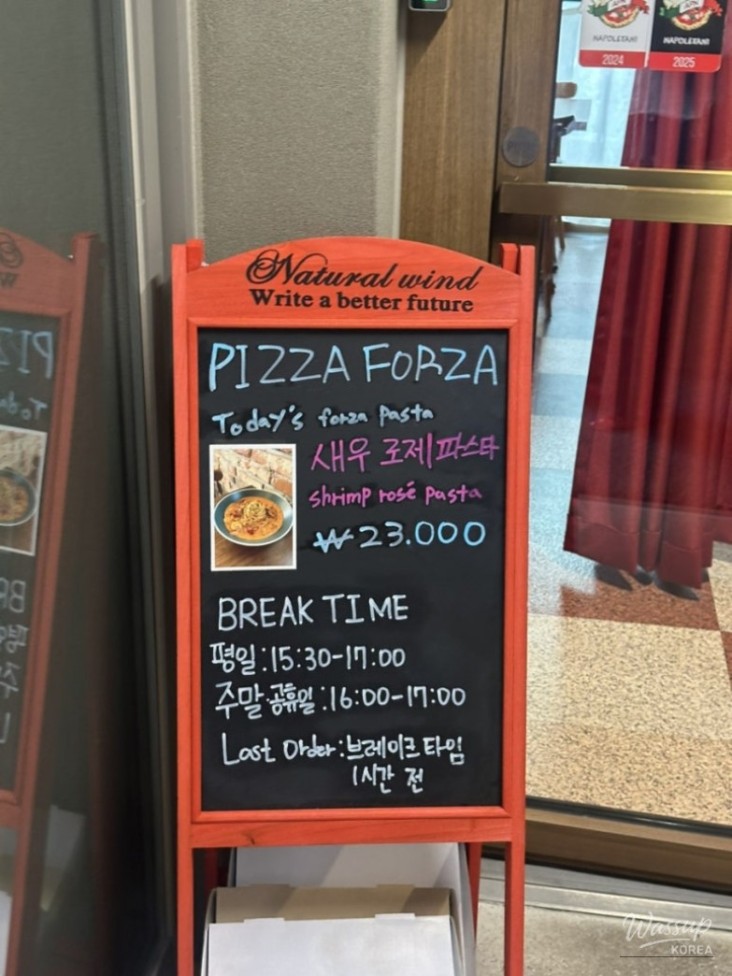 NAPOLETANI
NAPOLETANI
2024
2025
Natural wind
Write a better future
PIZZA FORZA
Today's forza pasta
새우 로제파스타
shrimp rosé pasta
₩23.000
BREAK TIME
평일:15:30-17:00
주말·공휴일:16:00-17:00
Last Order:브레이크타임
1시간 전
Wassup
KOREA